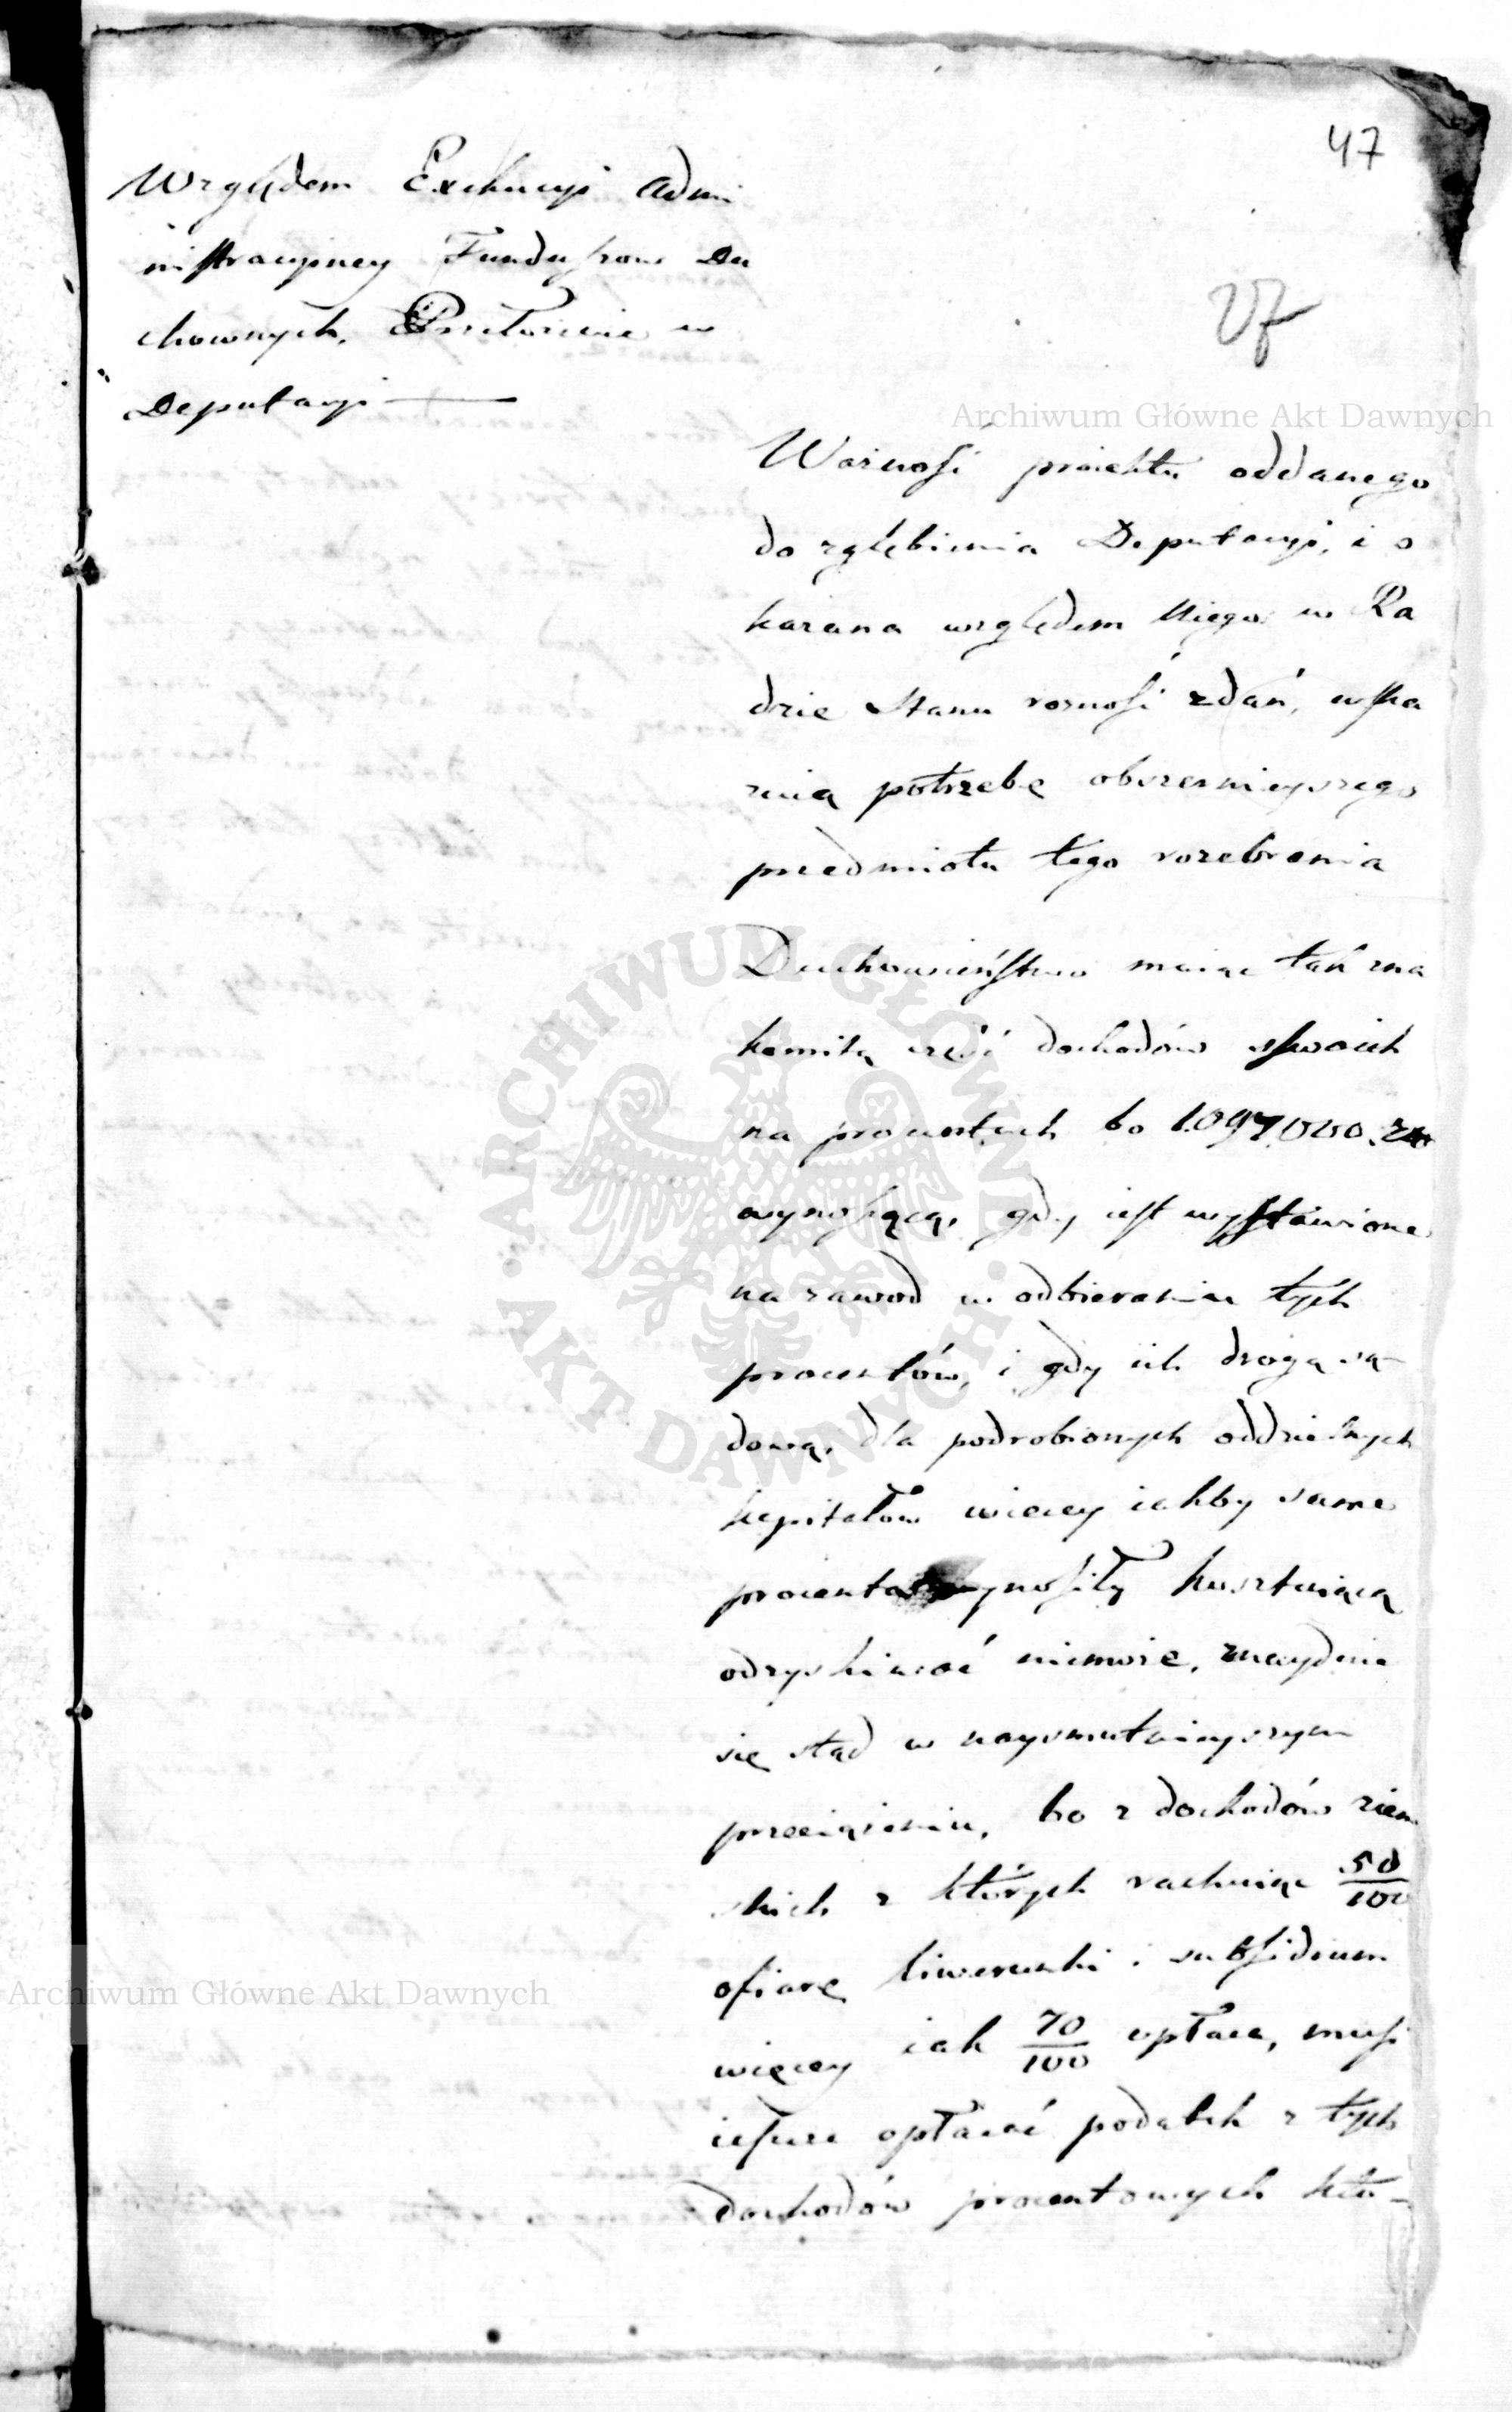 47
Względem Exekucyi Admi
nistracyiney Funduszow Du
chownych, Przełożenie w
Deputacyi —
Archiwum Główne Akt Dawnych
Ważność proiektu oddanego
do zgłębienia Deputacyi, i o
kazana względem Niego w Ra
dzie Stanu rożność zdań, wska
zuią potrzebę obszernieyszego
przedmiotu tego rozebrania
Duchowieństwo maiąc tak zna
komitą część dochodów swoich
na procentach bo 1.097,000.
wynoszącą, gdy iest wystawione
na zawod w odbieraniu tych
procentów, i gdy ich drogą są-
dową, dla podrobionych oddzielnych
kapitałow więcey iakby same
procenta wynosiły kosztuiącą
odzyskiwać niemoże, znayduie
się stąd w naysmutnieyszym
przeciążeniu, bo z dochodów ziem
skich z których rachuiąc 50/100
ofiarę liwerunki i subsidium
więcey iak 70/100 opłaca, musi
ieszcze opłacać podatek z tych
dochodów procentowych któ-
ARCHIWUM GŁÓWNE · AKT DAWNYCH ·
Archiwum Główne Akt Dawnych